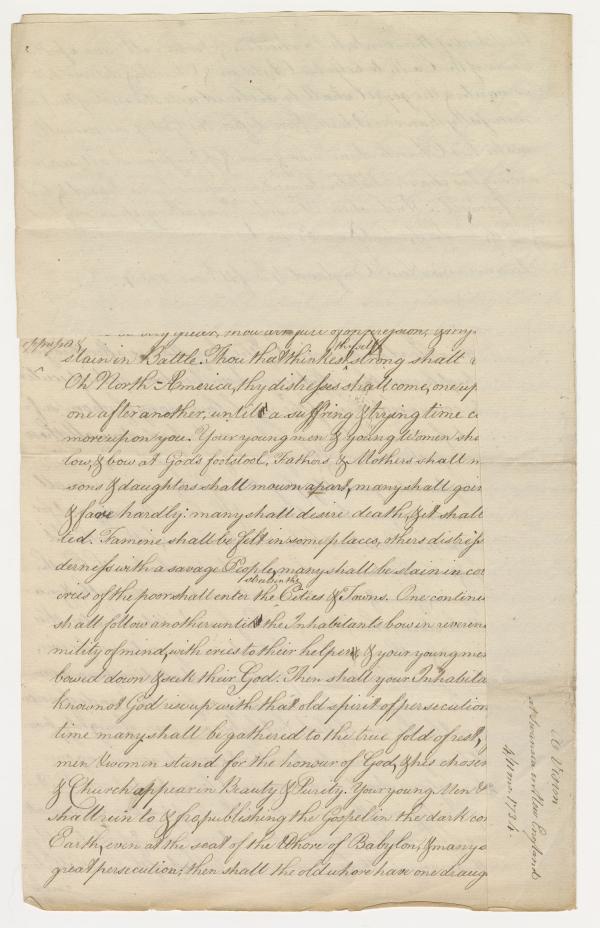 oppress &
thyself
slain in Battle. Thou that thinkest strong shall
Oh North-America, thy distresses shall come, one up
one after another, until a suffring & trying time c
more upon you. Your young men & young Women sha
low, & bow at God's footstool, Fathers & Mothers shall m
sons & daughters shall mourn apart, many shall go in
& fare hardly: many shall desire death, & it shall
ied. Famine shall be felt in some places, others distress
derness with a savage People, many shall be slain in co
shall in the
cries of the poor shall enter the Cities & Towns. One contine
shall follow another until the Inhabitants bow in reveren
mility of mind, with cries to their helper & your young men
bowed down & seek their God. Then shall your Inhabita
know not God rise up with that old spirit of persecution
time many shall be gathered to the true fold of rest,
men & women stand for the honour of God, & his chosen
& Church appear in Beauty & Purity. Your young Men &
shall run to & fro, publishing the Gospel in the dark co
Earth, even at the seat of the Whore of Babylon, & many
great persecution; then shall the old whore have one draug
A Vision
at Swansea in New England
1734.